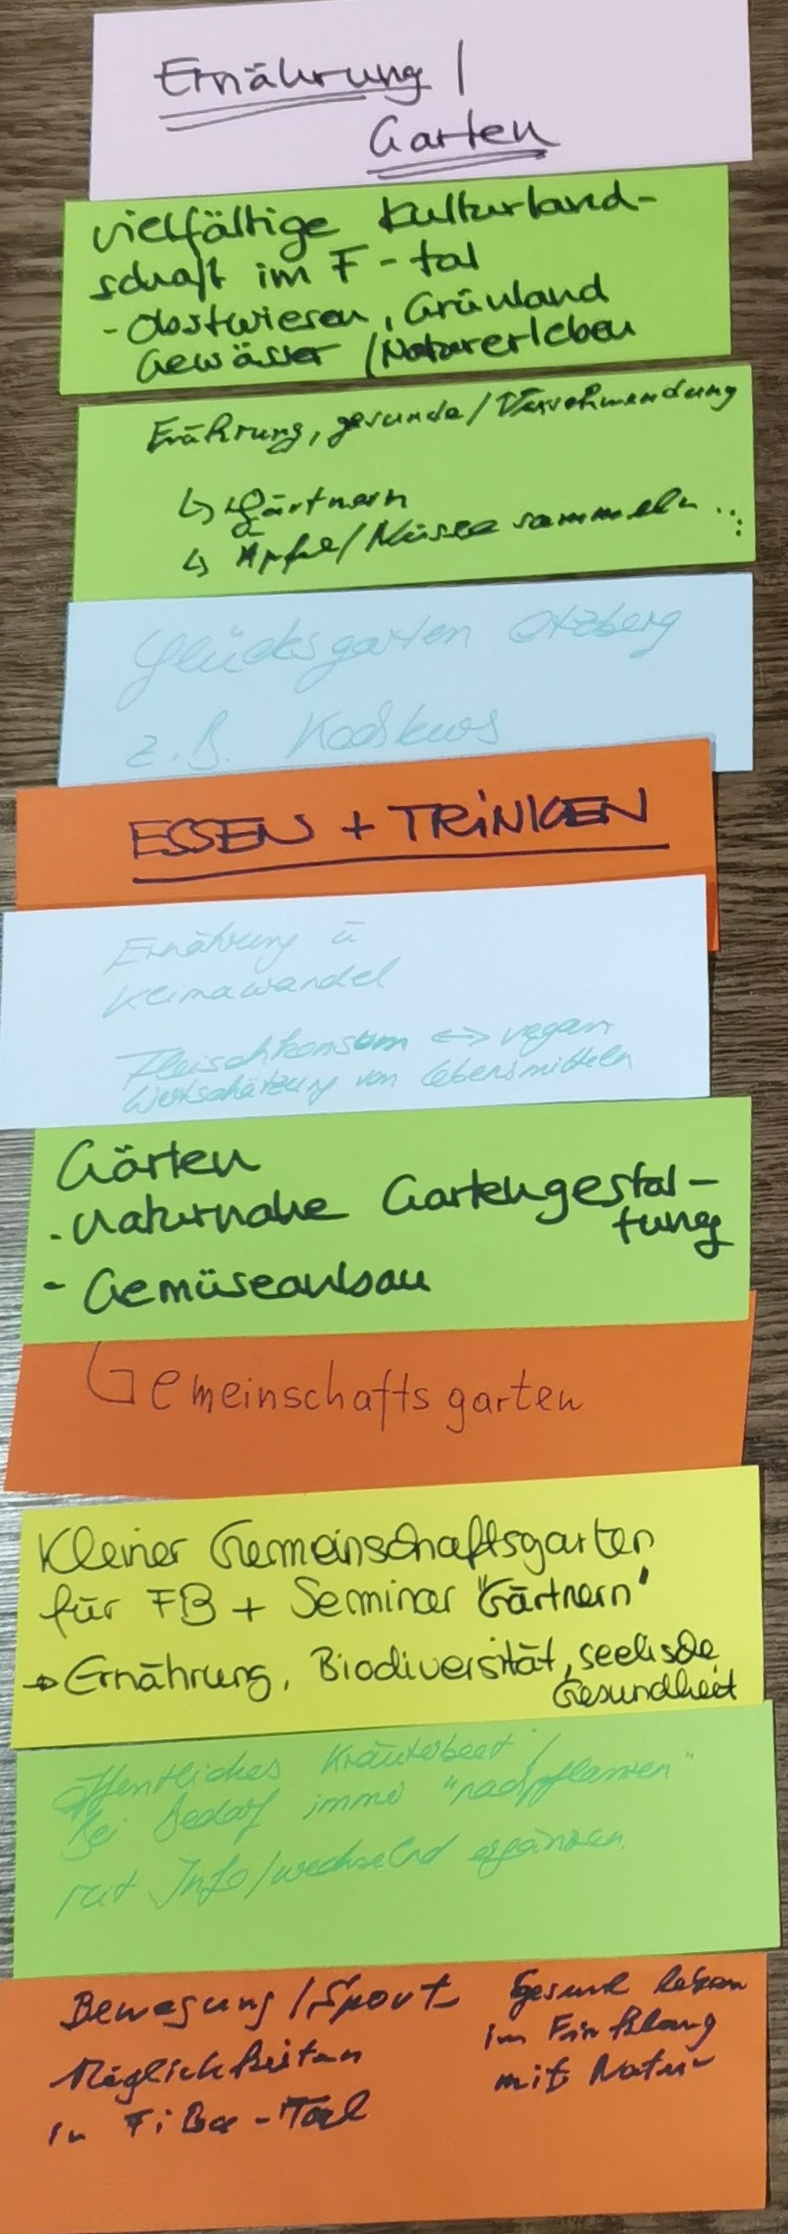 Ernährung /
Garten
vielfältige Kulturland-
schaft im F-tal
- Obstwiesen, Grünland
Gewässer / Naturerleben
Ernährung, gesunde /
↳ Gärtnern
↳ Äpfel / Nüsse sammeln ...
Glücksgarten Otzberg
z.B. Kochkurs
ESSEN + TRINKEN
Ernährung u
Klimawandel
Fleischkonsum <-> vegan
Wertschätzung von Lebensmitteln
Gärten
- naturnahe Gartengestal-
tung
- Gemüseanbau
Gemeinschaftsgarten
Kleiner Gemeinschaftsgarten
für FB + Seminar "Gärtnern"
→ Ernährung, Biodiversität, seelische
Gesundheit
öffentliches Kräuterbeet /
Bei Bedarf immer "nachpflanzen"
mit Info / wechselnd ergänzen
Bewegung / Sport
Möglichkeiten
in FiBa-Tal
Gesund leben
im Einklang
mit Natur